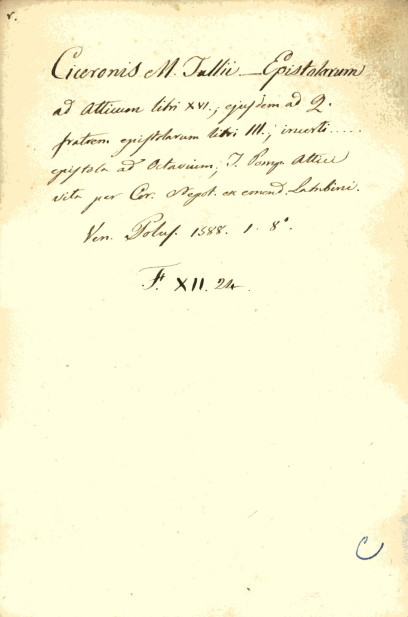 v.
Ciceronis M. Tullii — Epistolarum
ad Atticum libri XVI.; ejusdem ad Q.
fratrem epistolarum libri III.; incerti .....
epistola ad Octavium; T. Pomp. Attici
vita per Cor. Nepot. ex emend. Lambini.
Ven. Polus. 1588. 1. 8°.
F. XII. 24.
C